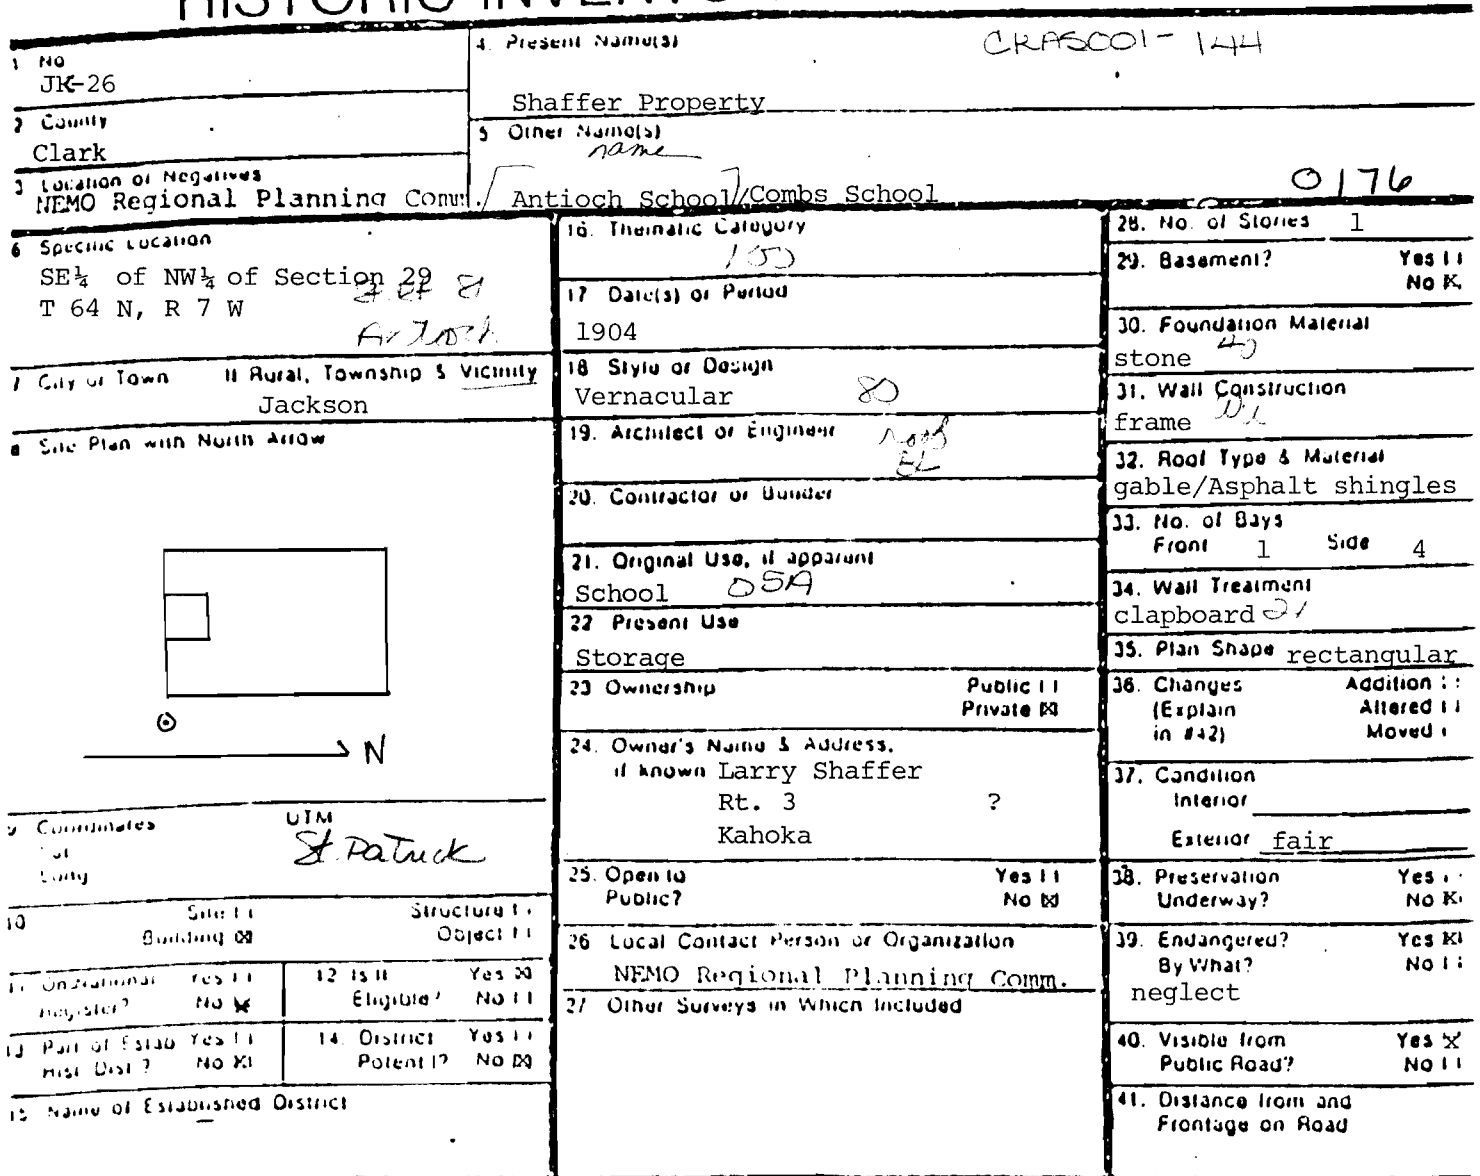 HISTORIC INVENTO
1 No
JK-26
4. Present Name(s)
CRASC001-144
Shaffer Property
2 County
Clark
5 Other Name(s)
name
3 Location of Negatives
NEMO Regional Planning Comm.
[Antioch School]/Combs School
0176
6 Specific Location
SE¼ of NW¼ of Section 29
T 64 N, R 7 W
Antioch
7 City or Town If Rural, Township & Vicinity
Jackson
8 Site Plan with North Arrow
N
9 Coordinates UTM
Lat
Long
St. Patrick
10 Site [ ] Structure [ ]
Building [X] Object [ ]
11 On National Yes [ ]
Register? No [X]
12 Is It Yes [X]
Eligible? No [ ]
13 Part of Estab Yes [ ]
Hist Dist? No [X]
14. District Yes [ ]
Potent'l? No [X]
15 Name of Established District
16. Thematic Category
17 Date(s) or Period
1904
18 Style or Design
Vernacular 80
19. Architect or Engineer
roof
EL
20. Contractor or Builder
21. Original Use, if apparent
School OSA
22 Present Use
Storage
23 Ownership Public [ ]
Private [X]
24. Owner's Name & Address,
if known Larry Shaffer
Rt. 3 ?
Kahoka
25. Open to Yes [ ]
Public? No [X]
26 Local Contact Person or Organization
NEMO Regional Planning Comm.
27 Other Surveys in Which Included
28. No. of Stories 1
29. Basement? Yes [ ]
No [X]
30. Foundation Material
stone 40
31. Wall Construction
frame
32. Roof Type & Material
gable/Asphalt shingles
33. No. of Bays
Front 1 Side 4
34. Wall Treatment
clapboard 21
35. Plan Shape rectangular
36. Changes Addition [ ]
(Explain Altered [ ]
in #42) Moved [ ]
37. Condition
Interior
Exterior fair
38. Preservation Yes [ ]
Underway? No [X]
39. Endangered? Yes [X]
By What? No [ ]
neglect
40. Visible from Yes [X]
Public Road? No [ ]
41. Distance from and
Frontage on Road